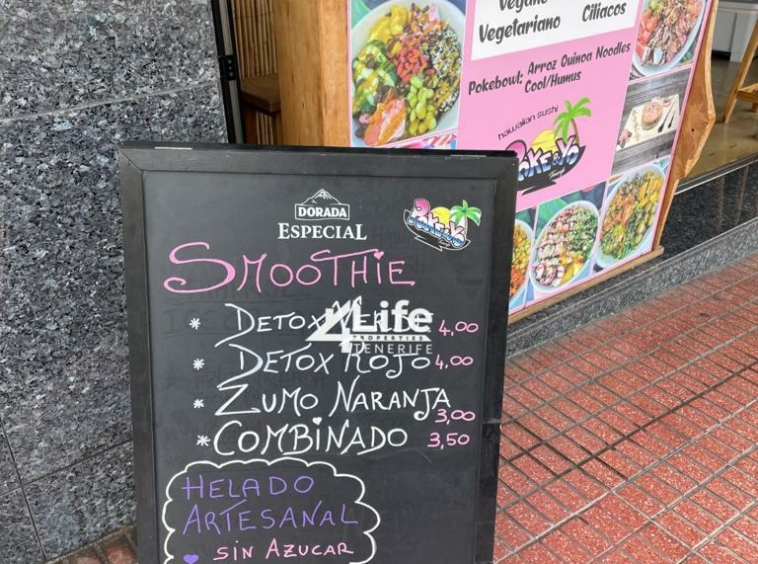 Vegano
Vegetariano Ciliacos
Pokebowl: Arroz Quinoa Noodles
Cool/Humus
hawaiian sushi
POKE & YO
DORADA
ESPECIAL
POKE & YO
SMOOTHIE
* DETOX VERDE 4,00
4Life
PROPERTIES
TENERIFE
* DETOX ROJO 4,00
* ZUMO NARANJA 3,00
* COMBINADO 3,50
HELADO
ARTESANAL
SIN AZUCAR